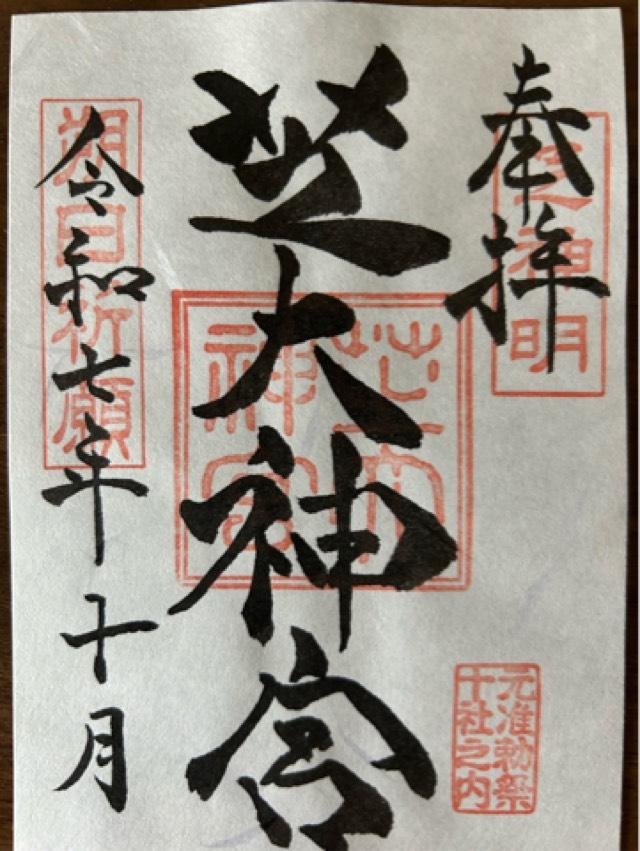 奉拝
芝神明
芝大神宮
芝大
神宮
元准勅祭
十社之内
令和七年十月
朔日祈願